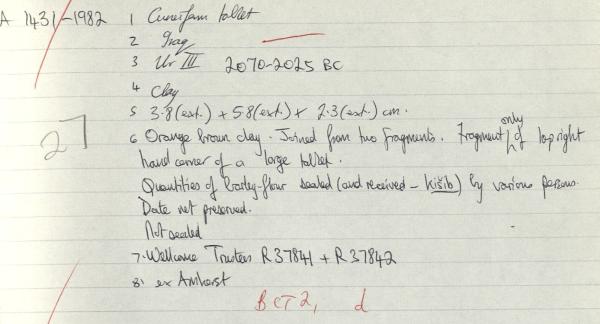 A 1431-1982 1 Cuneiform tablet
2 Iraq
3 Ur III 2070-2025 BC
4 Clay
5 3.8 (ext.) + 5.8 (ext.) x 2.3 (ext.) cm.
only
6 Orange brown clay. Joined from two fragments. Fragment of top right
27
hand corner of a large tablet.
Quantities of barley-flour sealed (and received - kišib) by various persons.
Date not preserved.
Not sealed
7. Wellcome Trustees R37841 + R37842
8. ex Amherst
BCT2, d